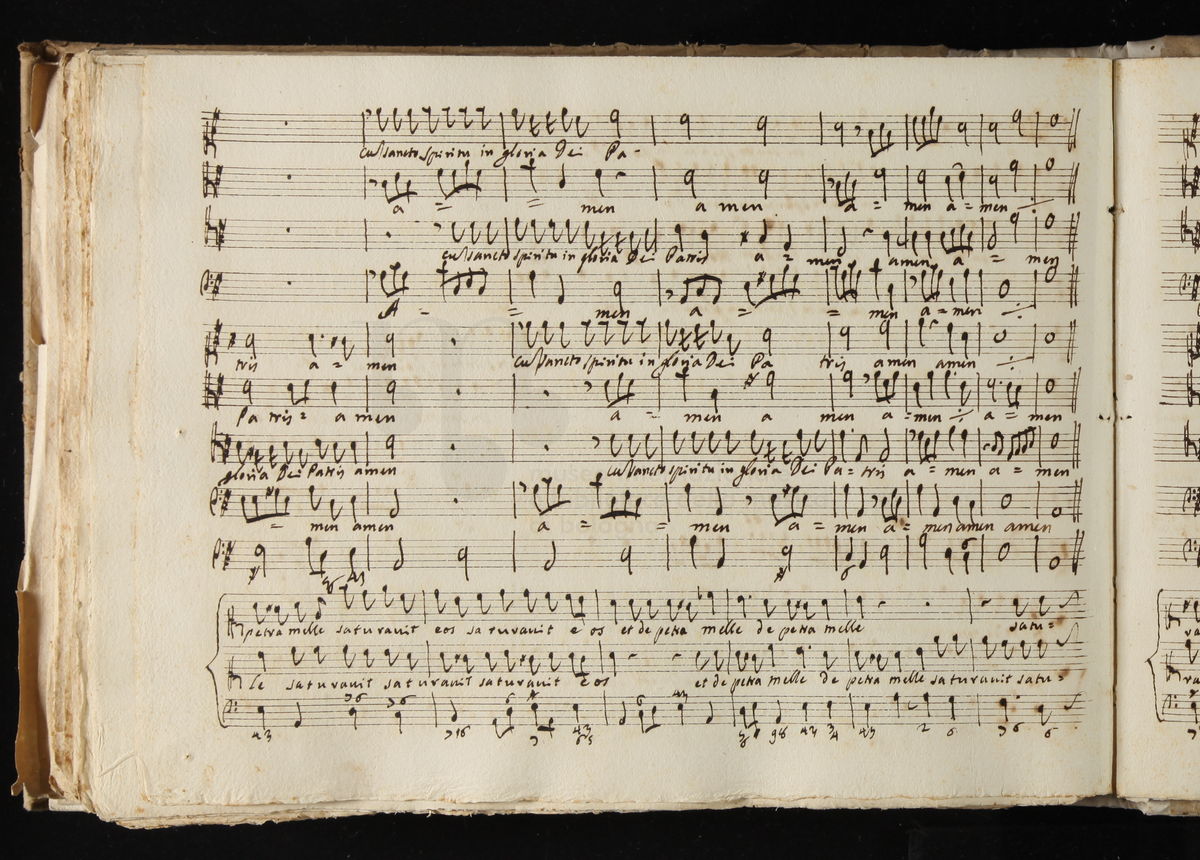 cu Sancto spiritu in gloria Dei Pa-
a = = men a men a = men a = men
cu Sancto spiritu in gloria Dei Patris a = men amen a = men
A = = men a = = men a = men
tris a = men cu Sancto spiritu in gloria Dei Pa tris amen amen
Pa tris = a men a = men a men a = men a = men
gloria Dei Patris amen cu Sancto spiritu in gloria Dei Pa = tris a = men a = men
= men amen a = = men a = men a = men amen amen
petra melle saturavit eos saturavit e os et de petra melle de petra melle satu =
le saturavit saturavit saturavit e os et de petra melle de petra melle saturavit satu =